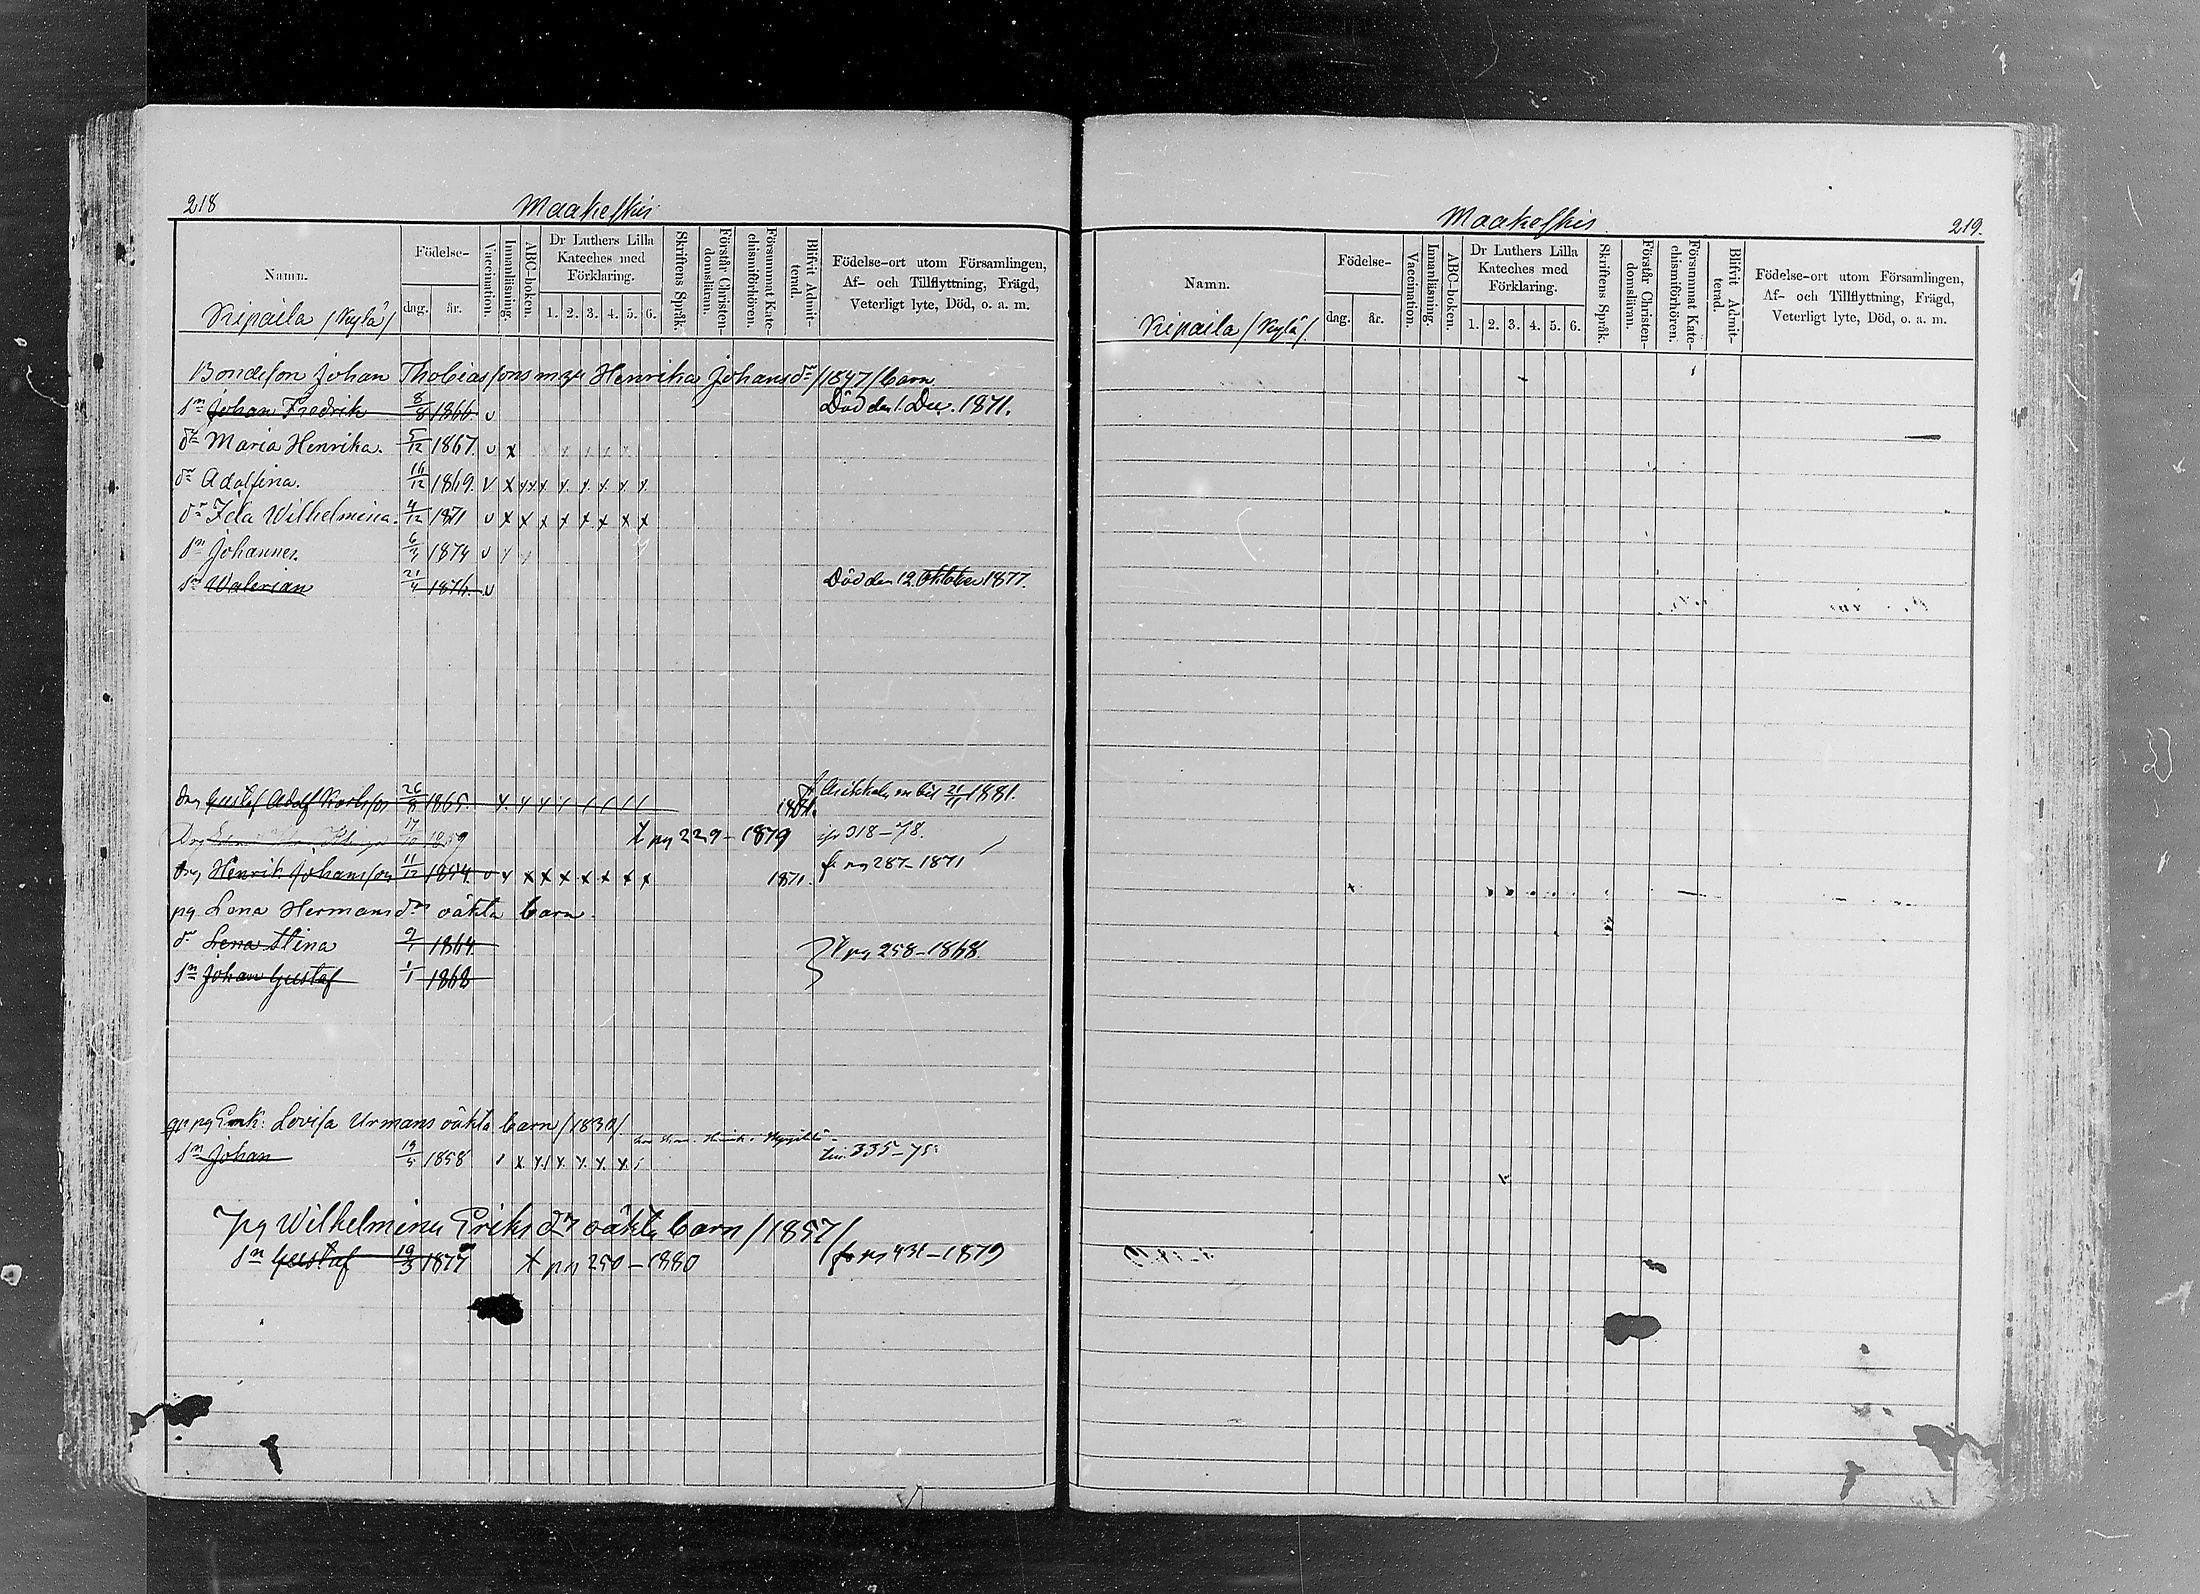 218
Maakeskis
Namn.
Födelse-
dag. år.
Vaccination.
Innanläsning.
ABC-boken.
Dr Luthers Lilla Kateches med Förklaring.
1. 2. 3. 4. 5. 6.
Skriftens Språk.
Förstår Christen-domsläran.
Försummat Kate-chismiförhören.
Blifvit Admit-terad.
Födelse-ort utom Församlingen,
Af- och Tillflyttning, Frägd,
Veterligt lyte, Död, o. a. m.
Kipaila /Kylä/
Bondeson Johan Thobiassons m Henrika Johansdr /1847/ barn
sn Johan Fredrik 8/8 1866 v Död den 1. Dec. 1871.
dr Maria Henrika. 5/12 1867. v x
dr Adolfina. 16/12 1869. v x x x x x x x x x
dr Ida Wilhelmina. 4/12 1871 v x x x x x x x x
sn Johannes. 6/3 1874 v
sn Walerian 21/4 1876. v Död den 12. Oktober 1877.
drg Gustaf Adolf Karlsson 26/8 1865. 1881. bet 21/11 1881.
17/10 1859 t pg 229-1879 318-78.
drg Henrik Johansson 11/12 1854. v x x x x x x x x 1871. fr pg 287-1871
pg Lena Hermansdrs oäkta barn.
dr Lena Stina 9/1 1864
sn Johan Gustaf 1/1 1868 t pg 258-1868.
pg Enk: Lovisa Urmans oäkta barn /1830/
sn Johan 19/5 1858 335-75.
pg Wilhelmina Eriks drs oäkta barn /1857/
sn Gustaf 19/3 1877 t pg 250-1880 fr pg 431-1879
Maakeskis
219.
Namn.
Födelse-
dag. år.
Vaccination.
Innanläsning.
ABC-boken.
Dr Luthers Lilla Kateches med Förklaring.
1. 2. 3. 4. 5. 6.
Skriftens Språk.
Förstår Christen-domsläran.
Försummat Kate-chismiförhören.
Blifvit Admit-terad.
Födelse-ort utom Församlingen,
Af- och Tillflyttning, Frägd,
Veterligt lyte, Död, o. a. m.
Kipaila /Kylä/.